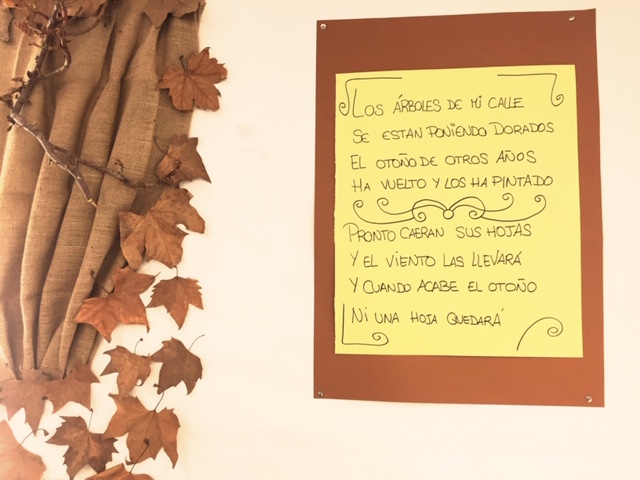 LOS ÁRBOLES DE MI CALLE
SE ESTAN PONIENDO DORADOS
EL OTOÑO DE OTROS AÑOS
HA VUELTO Y LOS HA PINTADO
PRONTO CAERAN SUS HOJAS
Y EL VIENTO LAS LLEVARÁ
Y CUANDO ACABE EL OTOÑO
NI UNA HOJA QUEDARÁ